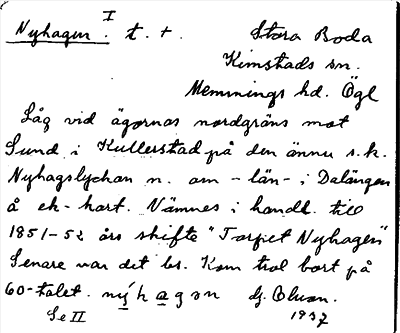 Nyhagen. I t. +
Stora Boda
Kimstads sn.
Memmings hd. Ögl
Låg vid ägornas nordgräns mot
Sund i Kullerstad på den ännu s.k.
Nyhagslyckan n. om - län - i Dalängen
å ek-kart. Nämnes i handl. till
1851-52 års skifte "Torpet Nyhagen"
Senare var det bs. Kom trol bort på
60-talet. nýhagən
Se II 1937